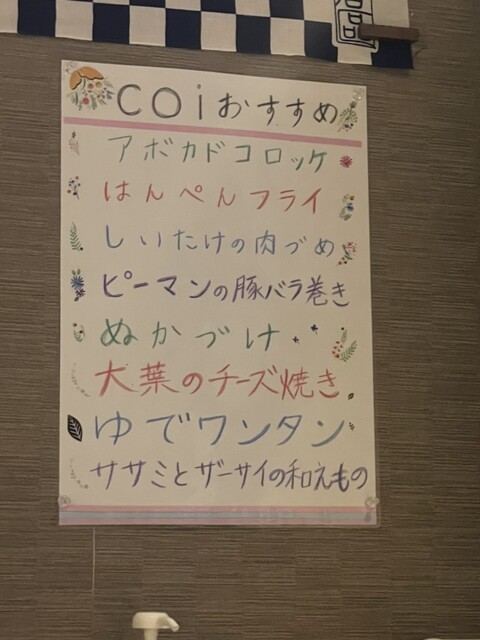 coiおすすめ
アボカドコロッケ
はんぺんフライ
しいたけの肉づめ
ピーマンの豚バラ巻き
ぬかづけ
大葉のチーズ焼き
ゆでワンタン
ササミとザーサイの和えもの